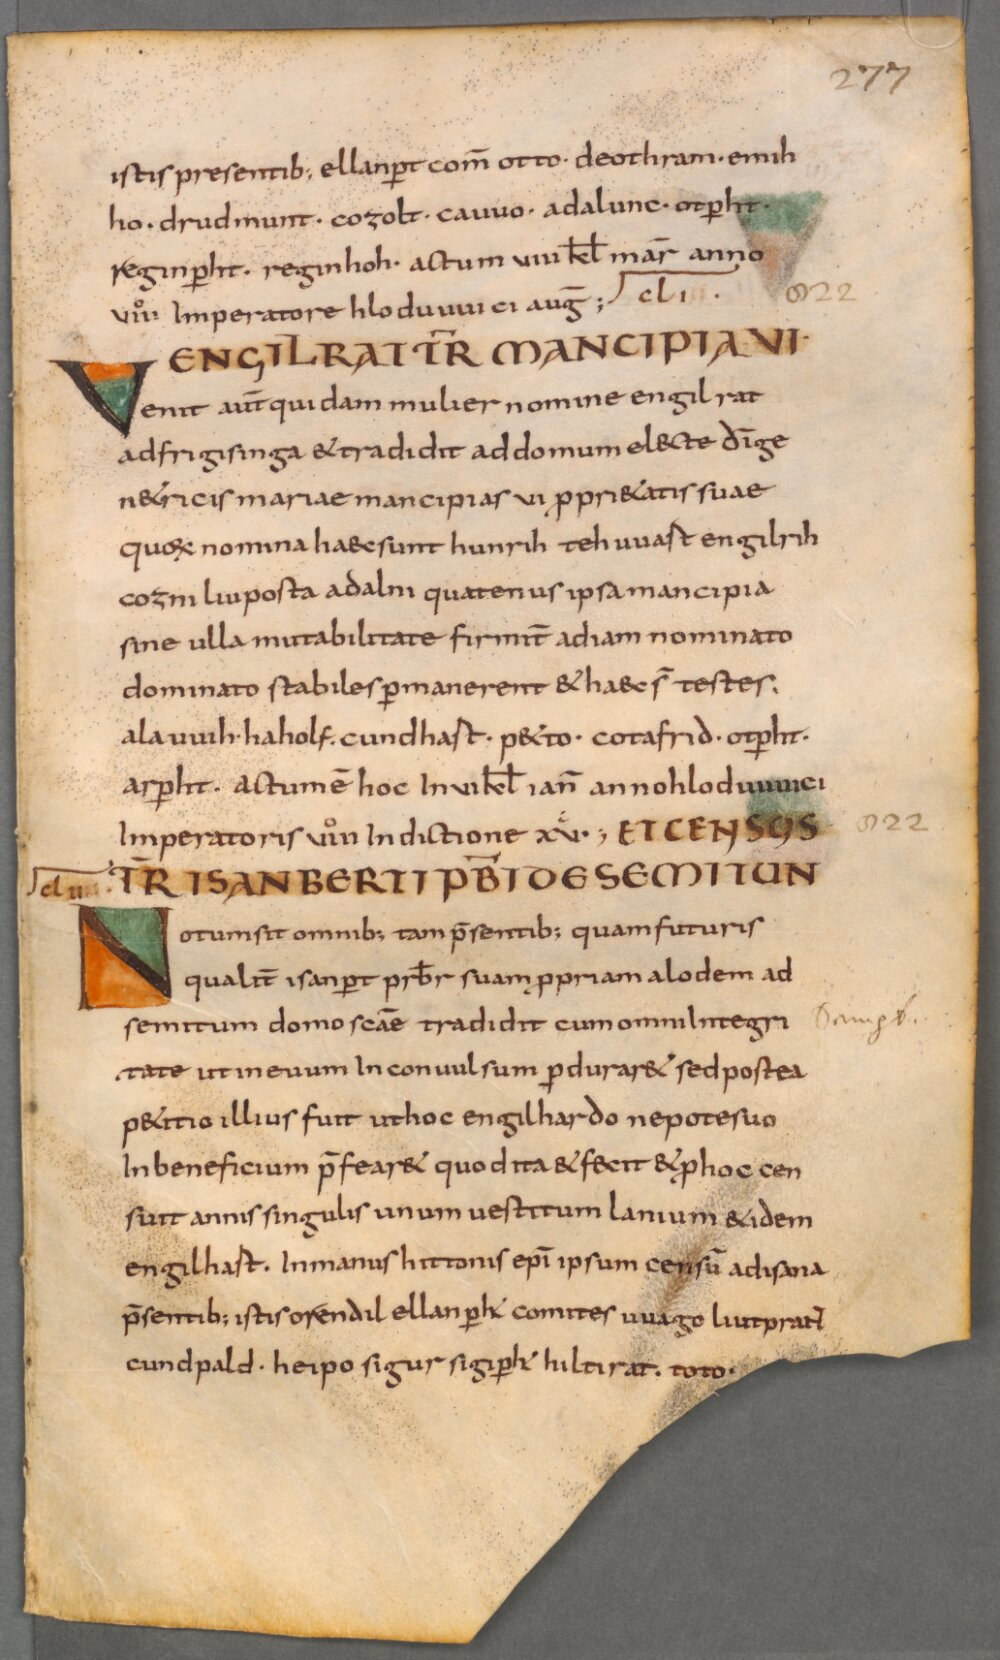 277
istis presentib; ellanp̄t com̄ otto· deothram· emih
ho· drudmunt· cozolt· cauuo· adalunc· otp̄ht·
reginp̄ht· reginhoh· actum viii kl̄ mar̄ anno
viiii Imperatore hloduuuici aug̅;
cli
822
ENGILRAT TR̄ MANCIPIA·VI·
Venit aut̄ quidam mulier nomine engilrat
ad frigisinga & tradidit ad domum el&te dī ge
n&ricis mariae mancipias vi ꝓpri&atis suae
quoꝝ nomina haec sunt hunrih tehuuast engilrih
cozni liuposta adalni quatenus ipsa mancipia
sine ulla mutabilitate firmit̄ ad iam nominato
dominato stabiles p̄manerent & haec s̄ testes;
alauuih· haholf· cundhast· p&to· cotafrid· otp̄ht·
arp̄ht· actum ē hoc In vi kl̄ ian̄ anno hloduuuici
Imperatoris viiii Indictione xv·; ET CENSUS
822
TR̄ ISANBERTI PB̄I DE SEMITUN
Notum sit omnib; tam p̄sentib; quam futuris
qualit̄ isanp̄t prb̄r suam ꝓpriam alodem ad
semitum domo scāe tradidit cum omni Integri
tate ut in euum Inconuulsum p̄durar& sed postea
p&itio illius fuit ut hoc engilhardo nepote suo
In beneficium p̄fear& quod ita & fecit & ꝓ hoc cen
suit annis singulis unum uestitum lanium & idem
engilhast· In manus hittonis epī ipsum censū adisana
p̄sentib; istis orendil ellanp̄h̄t comites uuago liutprat
cundpald· heipo sigur sigip̄h̄t hiltirat· toto·